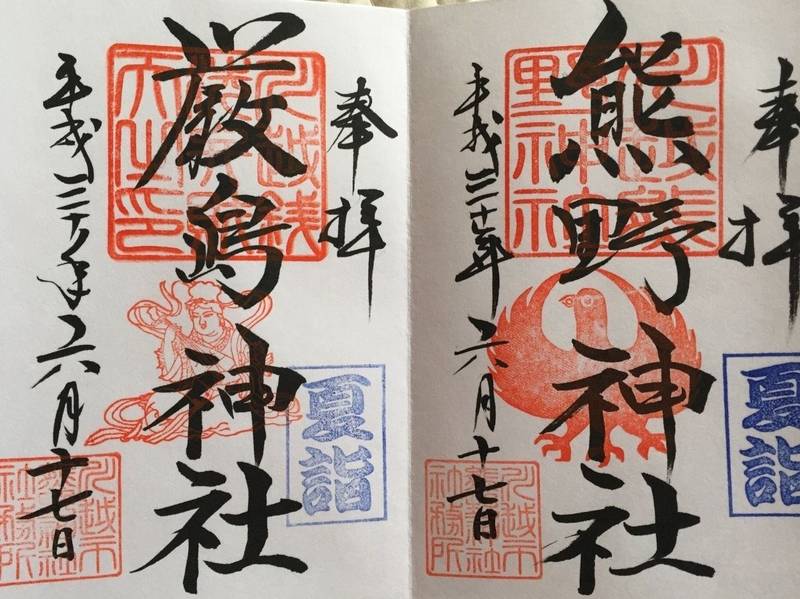 奉拝
川越熊
野神社
熊野神社
夏詣
平成三十年六月十七日
川越市
熊野神社
社務所
奉拝
川越銭
天之印
厳島神社
夏詣
平成三十年六月十七日
川越市
熊野神社
社務所